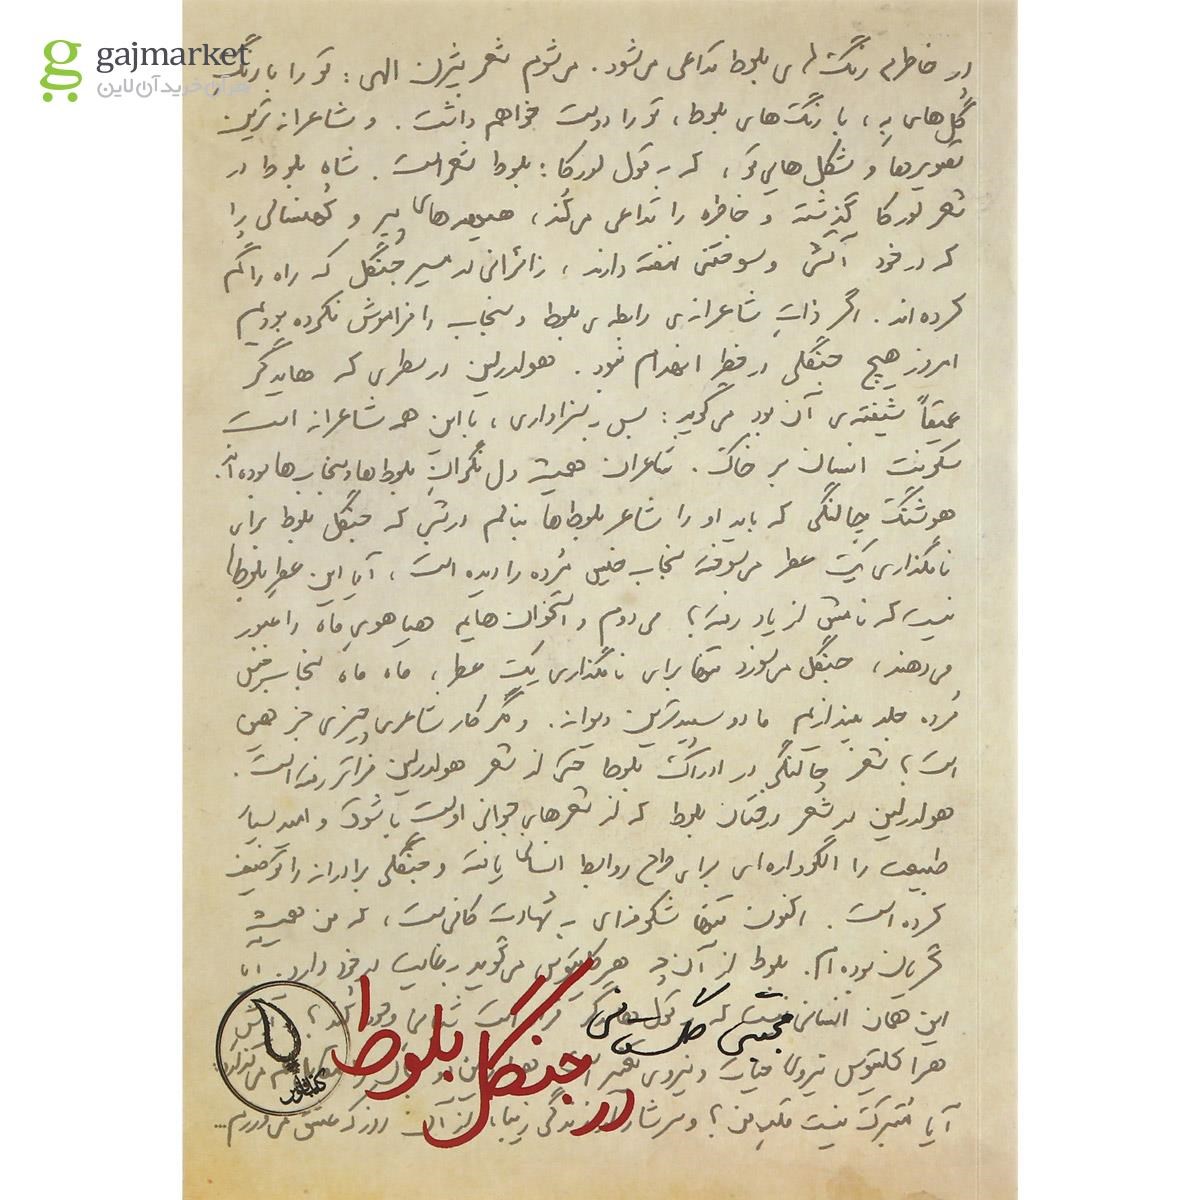 gajmarket
هایپر آنلاین خرید
در خاطرم رنگ‌های بلوط تداعی می‌شود. می‌شنوم شعر بیژن الهی: تو را با رنگ
گل‌های به، با رنگ‌های بلوط، تو را دوست خواهم داشت. و شاعرانه‌ترین
تصویرها و شکل‌هایی تو، که به قول لورکا: بلوط شعر است. شاه بلوط در
شعر لورکا گذشته و خاطره را تداعی می‌کند، هیمه‌های پیر و کهنسالی را
که در خود آتش و سوختنی نهفته دارند، زائرانی در مسیر جنگل که راه را گم
کرده‌اند. اگر ذاتِ شاعرانه‌ی رابطه‌ی بلوط و سنجاب را فراموش نکرده بودیم
امروز هیچ جنگلی در خطر انهدام نبود. هولدرلین در سطری که هایدگر
عمیقاً شیفته‌ی آن بود می‌گوید: بس به سزاواری، با این همه شاعرانه است
سکونت انسان بر خاک. شاعران همیشه دل نگرانِ بلوط‌ها و سنجاب‌ها بوده‌اند.
هوشنگ چالنگی که باید او را شاعر بلوط‌ها بنامم در شبی که جنگل بلوط برای
نامگذاری یک عطر می‌سوخته سنجاب خیس مُرده را دیده است، آیا این عطرِ بلوط‌ها
نیست که نامش از یاد رفته؟ می‌دوم و استخوان‌هایم هیاهوی ماه را عبور
می‌دهند، جنگل می‌سوزد تنها برای نامگذاری یک عطر، ماه ماه سنجاب خیس
مُرده جلد بیندازیم ما دو سپیدترین دیوانه. و مگر کار شاعری چیزی جز همین
است؟ شعر چالنگی در ادراک بلوط حتی از شعر هولدرلین فراتر رفته است.
هولدرلین در شعر درختان بلوط که از شعرهای جوانی اوست با شوق و امید بسیار
طبیعت را الگوواره‌ای برای طرح روابط انسانی یافته و جنگلی برادرانه را توصیف
کرده است. اکنون تنها شکوفه‌ای به شهادت کافی‌ست، که من همیشه
گریان بوده‌ام. بلوط از آن‌چه هراکلیتوس می‌گوید رضایت در خود دارد. آیا
این همان انسانی نیست که به قول
هراکلیتوس نیروی حیات و نیروی
آیا مُتبرک نیست قلبِ من؟ و سرشار از زندگی زیبا، از آن روز که عشق می‌ورزم...
مجتبی گلستانی
در جنگل بلوط‌ها